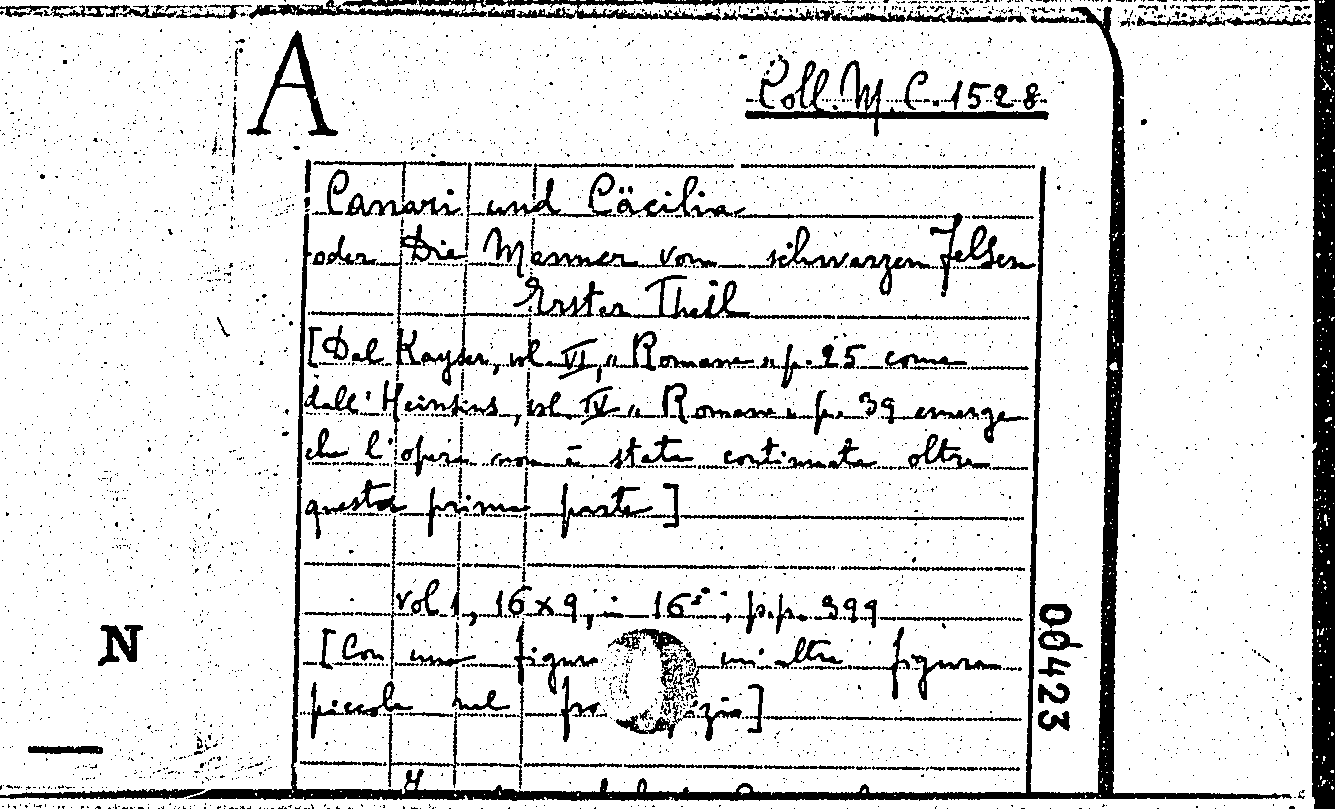 A
Coll. M. C. 1528
Canari und Cäcilia
oder Die Männer vom schwarzen Felsen
Erster Theil
[Dal Kayser, vol. VI, " Romane " p. 25 come
dall' Heinsius, vol. IV " Romane " p. 39 emerge
che l'opera non è stata continuata oltre
questa prima parte]
vol 1, 16x9, in 16°, p.p. 399
[Con una figura un'altra figura
piccola nel]
00423
N